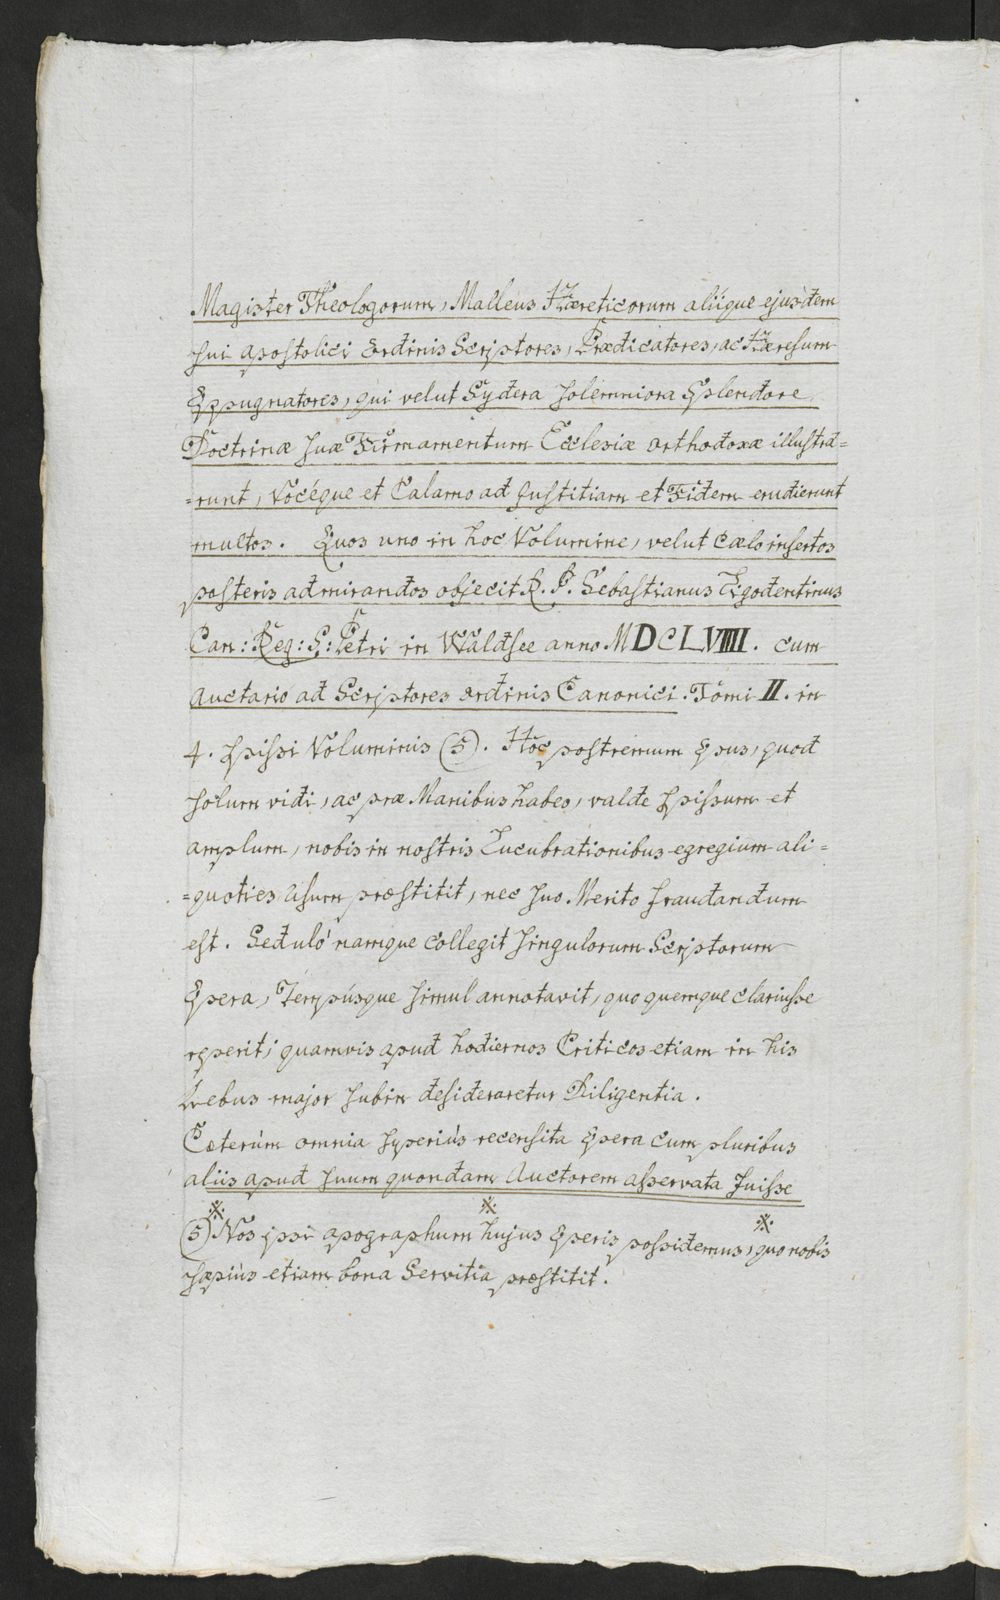 Magister Theologorum, Malleus Hæreticorum aliique ejusdem
sui apostolici Ordinis Scriptores, Prædicatores, ac Hæresum
Expugnatores, qui velut Sydera solemniora Splendore
Doctrinæ suæ Firmamentum Ecclesiæ orthodoxæ illustra=
=runt, Vocéque et Calamo ad Justitiam et Fidem erudierunt
multos. Quos uno in hoc Volumine, velut Cælo insertos
posteris admirandos objecit R. P. Sebastianus
Can: Reg: S: Petri in Waldsee anno MDCLVIIII. cum
Auctario ad Scriptores Ordinis Canonici. Tomi II. in
4. spissi Voluminis (5). Hoc postremum Opus, quod
solum vidi, ac præ Manibus habeo, valde spissum et
amplum, nobis in nostris Lucubrationibus egregium ali=
=quoties Usum præstitit, nec suo Merito fraudandum
est. Seduló namque collegit singulorum Scriptorum
Opera, Tempúsque simul annotavit, quo quemque clariusse
reperit; quamvis apud hodiernos Criticos etiam in his
Rebus major subin desideraretur Diligentia.
Cæterùm omnia superiùs recensita Opera cum pluribus
aliis apud suum quondam Auctorem asservata fuisse
(5) Nos ipsi apographum hujus Operis possidemus, quo nobis
sæpiùs etiam bona Servitia præstitit.